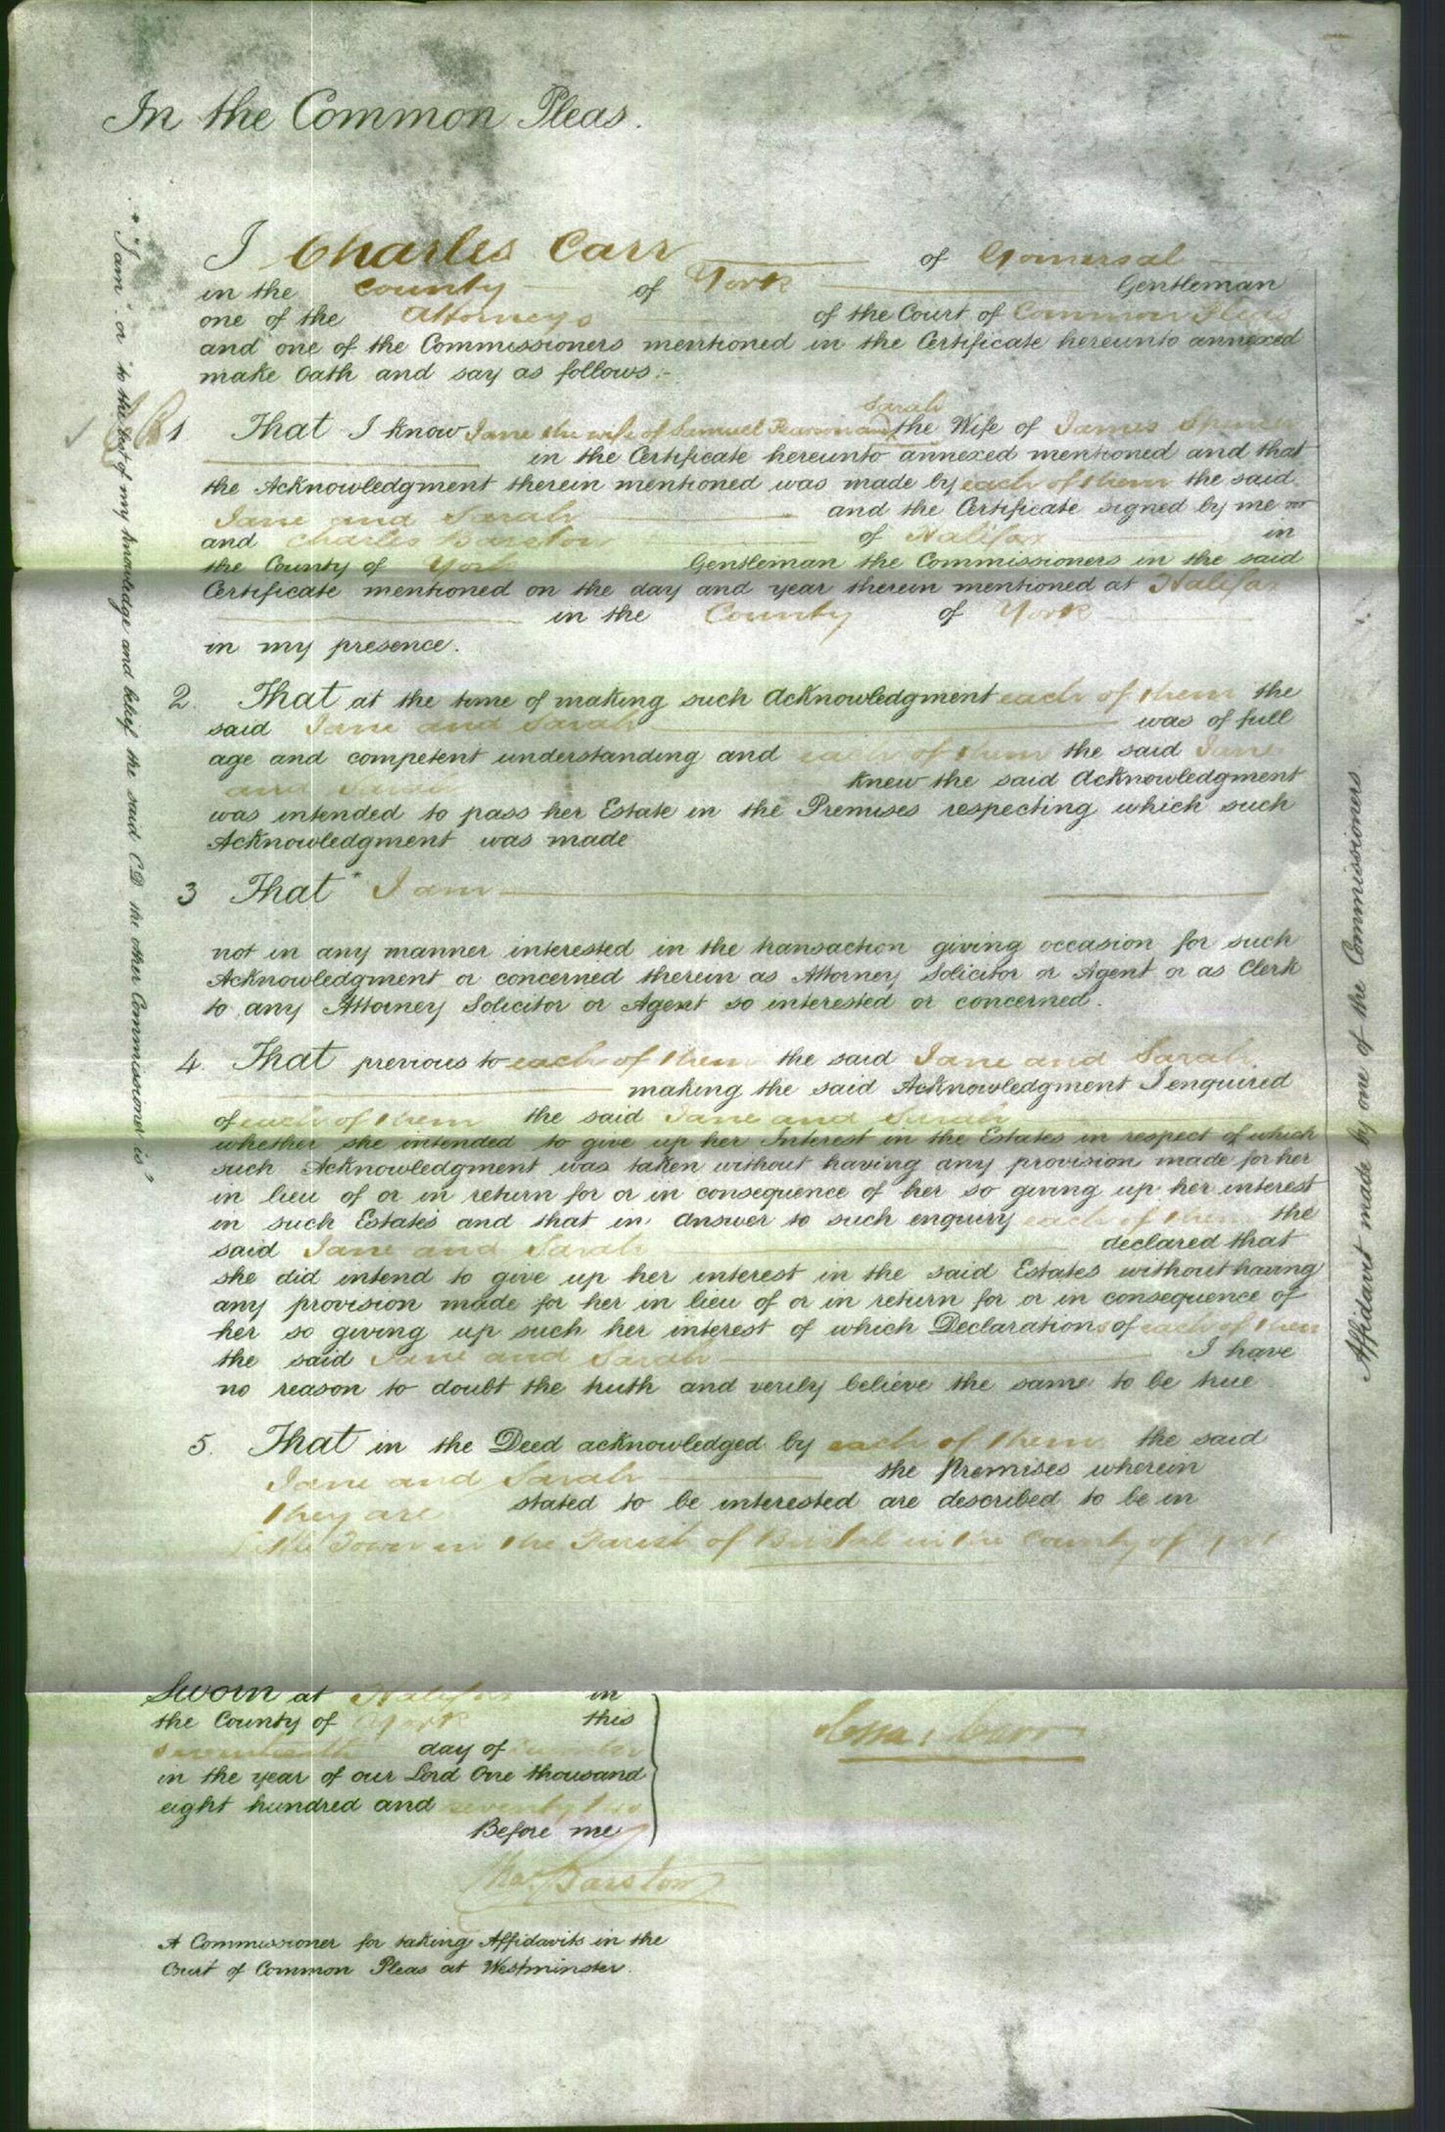 In the Common Pleas.
I Charles Carr of Gomersal
in the County of York Gentleman
one of the Attorneys of the Court of Common Pleas
and one of the Commissioners mentioned in the Certificate hereunto annexed
make Oath and say as follows:-
1. That I know Jane the wife of Samuel Pearson and Sarah the Wife of James Spencer
in the Certificate hereunto annexed mentioned and that
the Acknowledgment therein mentioned was made by each of them the said
Jane and Sarah and the Certificate signed by me
and Charles Barstow of Halifax in
the County of York Gentleman the Commissioners in the said
Certificate mentioned on the day and year therein mentioned at Halifax
in the County of York
in my presence.
2. That at the time of making such Acknowledgment each of them the
said Jane and Sarah was of full
age and competent understanding and each of them the said Jane
and Sarah knew the said Acknowledgment
was intended to pass her Estate in the Premises respecting which such
Acknowledgment was made
3 That * I am
not in any manner interested in the transaction giving occasion for such
Acknowledgment or concerned therein as Attorney Solicitor or Agent or as Clerk
to any Attorney Solicitor or Agent so interested or concerned.
4. That previous to each of them the said Jane and Sarah
making the said Acknowledgment I enquired
of each of them the said Jane and Sarah
whether she intended to give up her Interest in the Estates in respect of which
such Acknowledgment was taken without having any provision made for her
in lieu of or in return for or in consequence of her so giving up her interest
in such Estates and that in answer to such enquiry each of them the
said Jane and Sarah declared that
she did intend to give up her interest in the said Estates without having
any provision made for her in lieu of or in return for or in consequence of
her so giving up such her interest of which Declarations of each of them
the said Jane and Sarah I have
no reason to doubt the truth and verily believe the same to be true
5. That in the Deed acknowledged by each of them the said
Jane and Sarah the Premises wherein
they are stated to be interested are described to be in
in the Parish of Birstal in the County of York
Sworn at Halifax in
the County of York this
seventeenth day of
in the year of our Lord One thousand
eight hundred and seventy two
Before me
Chas. Barstow
A Commissioner for taking Affidavits in the
Court of Common Pleas at Westminster.
Chas Carr
* "I am" or "to the best of my knowledge and belief the said CD the other Commissioner is"
Affidavit made by one of the Commissioners